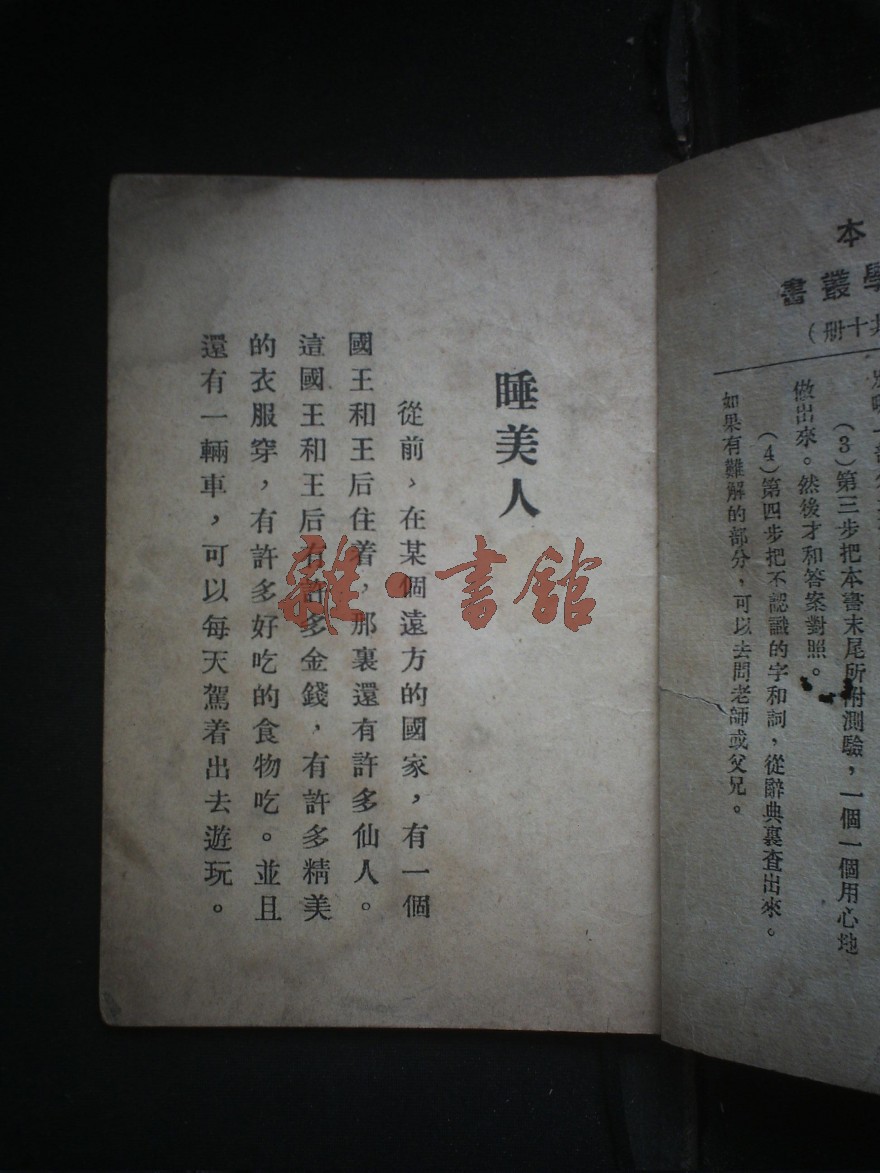 本
學叢書
共十冊)
(3)第三步把本書末尾所附測驗,一個一個用心地
做出來。然後才和答案對照。
(4)第四步把不認識的字和詞,從辭典裏查出來。
如果有難解的部分,可以去問老師或父兄。
睡美人
從前,在某個遠方的國家,有一個
國王和王后住着,那裏還有許多仙人。
這國王和王后有許多金錢,有許多精美
的衣服穿,有許多好吃的食物吃。並且
還有一輛車,可以每天駕着出去遊玩。
雜·書館